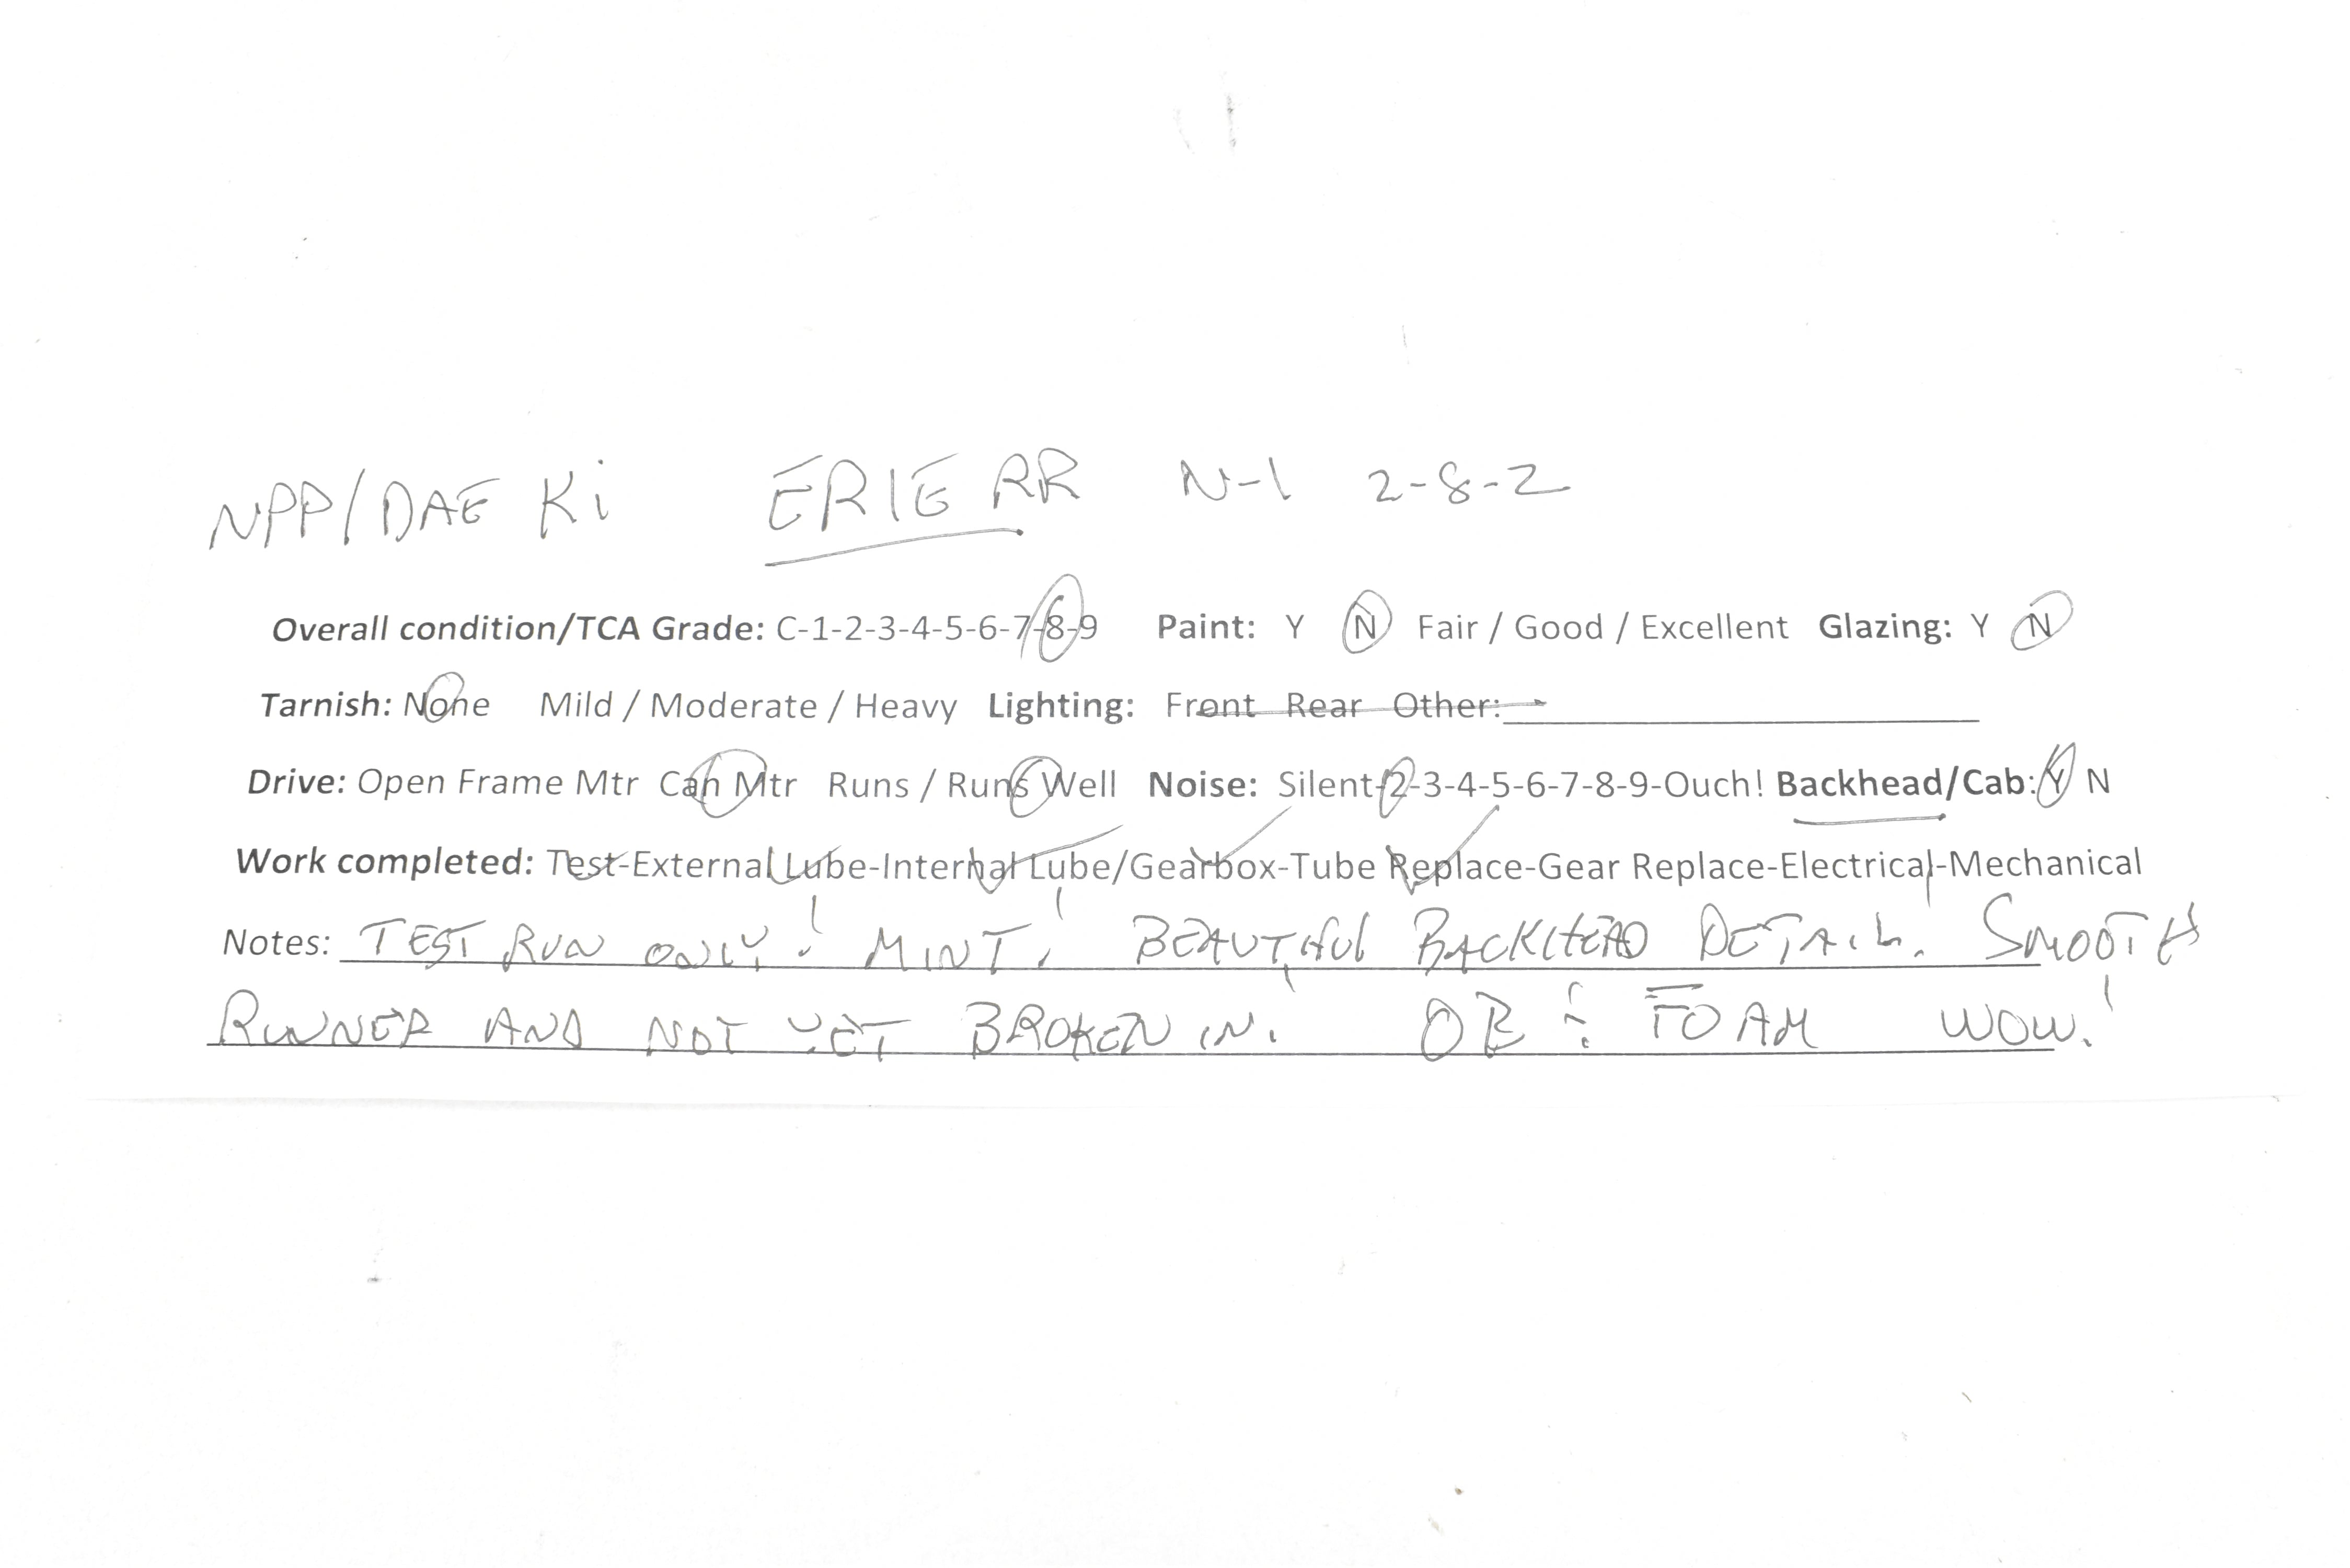 NPP/DAE Ki ERIE RR N-1 2-8-2
Overall condition/TCA Grade: C-1-2-3-4-5-6-7-8-9 Paint: Y N Fair / Good / Excellent Glazing: Y N
Tarnish: None Mild / Moderate / Heavy Lighting: Front Rear Other:
Drive: Open Frame Mtr Can Mtr Runs / Runs Well Noise: Silent-2-3-4-5-6-7-8-9-Ouch! Backhead/Cab: Y N
Work completed: Test-External Lube-Internal Lube/Gearbox-Tube Replace-Gear Replace-Electrical-Mechanical
Notes: TEST RUN ONLY! MINT! BEAUTIFUL BACKHEAD DETAIL. SMOOTH
RUNNER AND NOT YET BROKEN IN! OB & FOAM WOW!